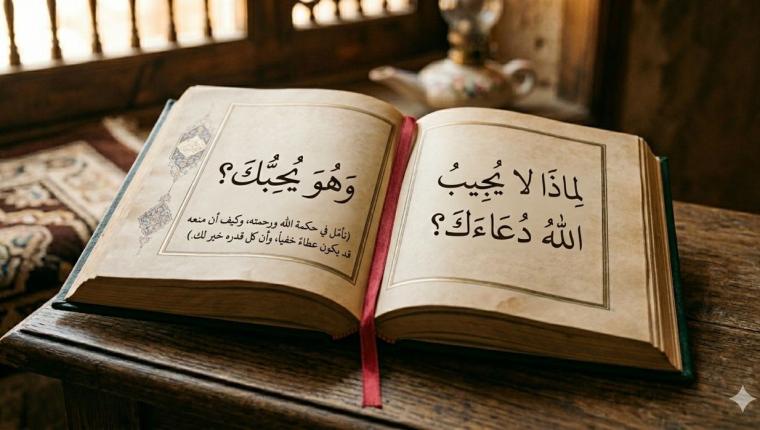 لِمَاذَا لا يُجِيبُ
اللهُ دُعَاءَكَ؟
وَهُوَ يُحِبُّكَ؟
(تأمّل في حكمة الله ورحمته، وكيف أن منعه
قد يكون عطاءً خفياً، وأن كل قدره خير لك.)